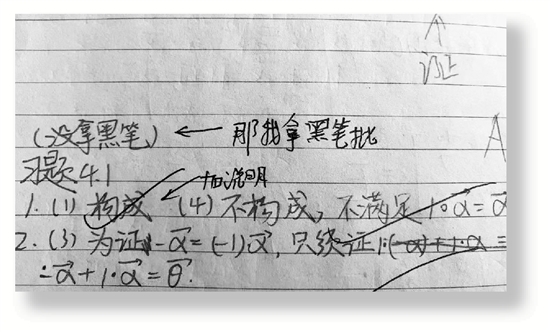 证
(没拿黑笔) ← 那我拿黑笔批
A
习题4.1
加说明
1. (1) 构成 (4) 不构成, 不满足 1·α⃗=α⃗
2. (3) 为证 -α⃗=(-1)α⃗, 只须证
-α⃗+1·α⃗=θ⃗.